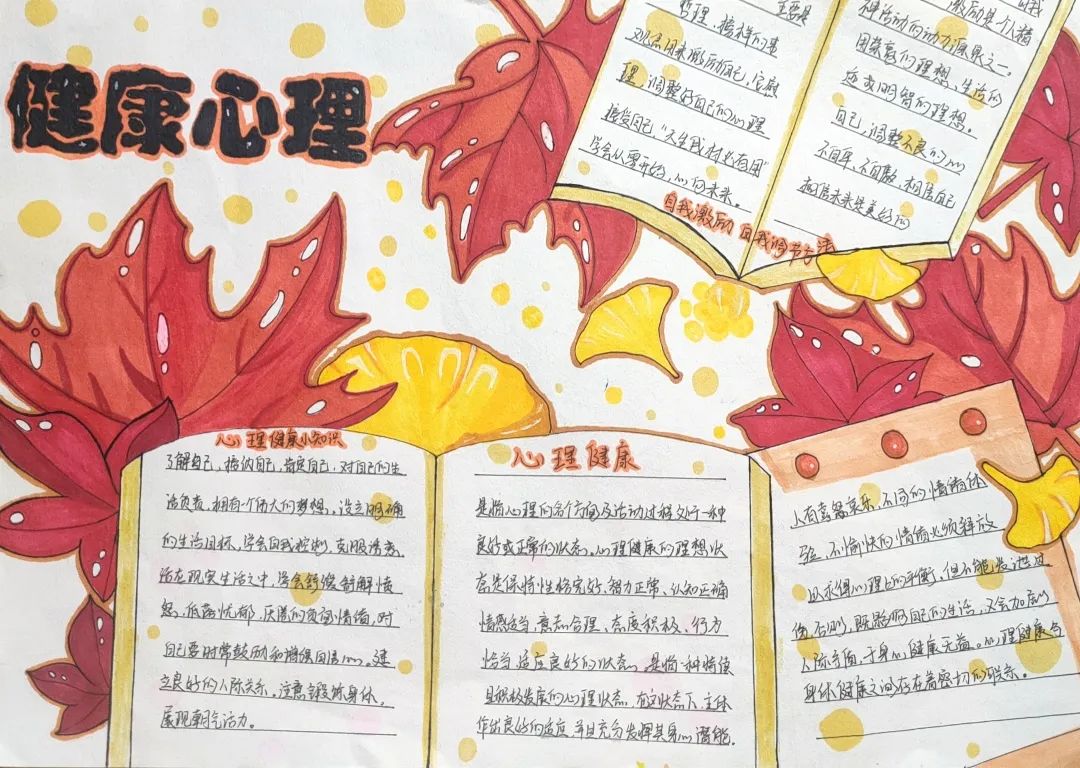 健康心理
哲理、榜样的事
观点用来激励自己，安慰
理，调整好自己的心理
接受自己“天生我材必有用”
学会从零开始，心向未来。
激励是个人精
神活动的动力源泉之一。
用崇高的理想、生活的
追求明智的理想。
自己，调整不良的心
不自卑、不自傲、相信自己
相信未来是美好的
自我激励 自我调节方法
心理健康小知识
了解自己，接纳自己，肯定自己，对自己的生
活负责，拥有一个伟大的梦想，设立明确
的生活目标，学会自我控制，克服诱惑，
活在现实生活之中，学会舒缓舒解愤
怒、低落忧郁、厌烦的负面情绪，对
自己要时常鼓励和增强自信心。建
立良好的人际关系。注意锻炼身体，
展现朝气活力。
心理健康
是指心理的各个方面及活动过程处于一种
良好或正常的状态。心理健康的理想状
态是保持性格完好、智力正常、认知正确
情感适当、意志合理、态度积极、行为
恰当、适应良好的状态。是指一种持续
且积极发展的心理状态，在这状态下，主体
作出良好的适应，并且充分发挥其身心潜能。
人有喜怒哀乐，不同的情绪体
验，不愉快的情绪必须释放
以求得心理上的平衡，但不能发泄过
份，否则，既影响自己的生活，又会加剧
人际矛盾，于身心健康无益。心理健康与
身体健康之间存在着密切的联系。